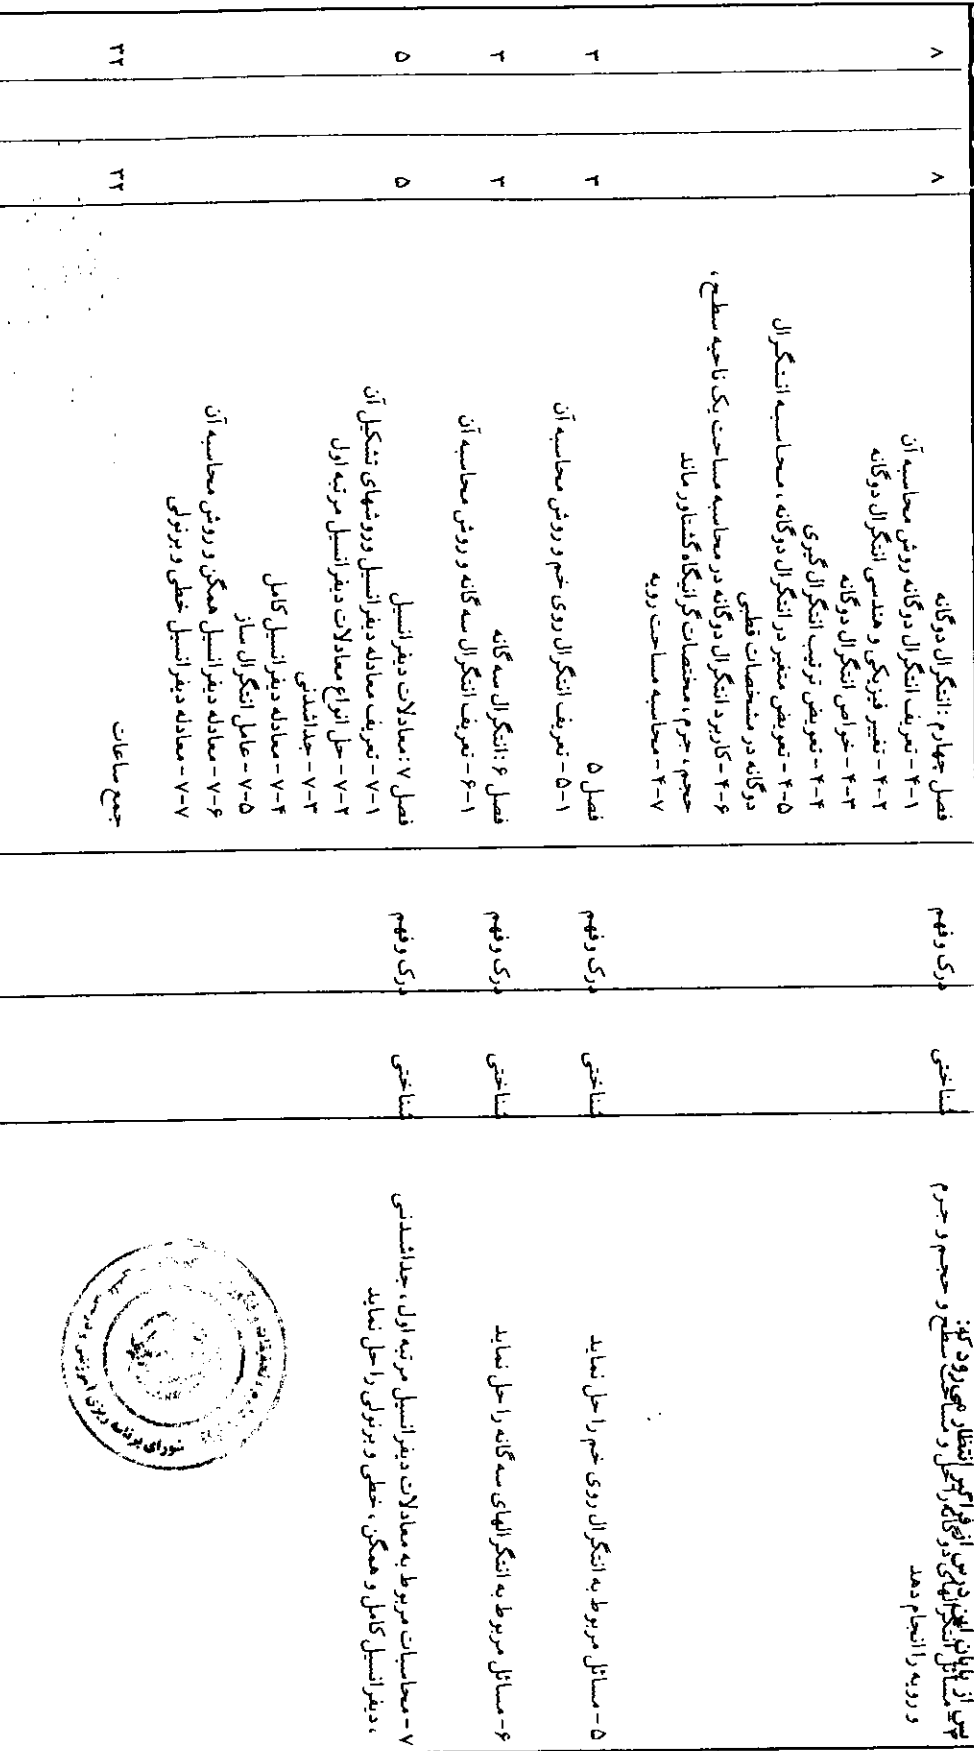 پس از پایان این درس از فراگیر انتظار می‌رود که:
۴- مسائل انتگرالهای دوگانه را حل و مساحت سطح و حجم و جرم
و رویه را انجام دهد
شناختی
درک و فهم
فصل چهارم: انتگرال دوگانه
۴-۱- تعریف انتگرال دوگانه روش محاسبه آن
۴-۲- تفییر فیزیکی و هندسی انتگرال دوگانه
۴-۳- خواص انتگرال دوگانه
۴-۴- تعویض ترتیب انتگرال گیری
۴-۵- تعویض متغیر در انتگرال دوگانه، محاسبه انتگرال
دوگانه در مشخصات قطبی
۴-۶- کاربرد انتگرال دوگانه در محاسبه مساحت یک ناحیه سطح،
حجم، جرم، مختصات گرانیگاه گشتاور ماند
۴-۷- محاسبه مساحت رویه
۸
۸
۵- مسائل مربوط به انتگرال روی خم را حل نماید
شناختی
درک و فهم
فصل ۵
۵-۱- تعریف انتگرال روی خم و روش محاسبه آن
۳
۳
۶- مسائل مربوط به انتگرالهای سه گانه را حل نماید
شناختی
درک و فهم
فصل ۶: انتگرال سه گانه
۶-۱- تعریف انتگرال سه گانه و روش محاسبه آن
۳
۳
۷- محاسبات مربوط به معادلات دیفرانسیل مرتبه اول، جداشدنی
، دیفرانسیل کامل و همگن، خطی و برنولی را حل نماید
شناختی
درک و فهم
فصل ۷: معادلات دیفرانسیل
۷-۱- تعریف معادله دیفرانسیل وروشهای تشکیل آن
۷-۲- حل انواع معادلات دیفرانسیل مرتبه اول
۷-۳- جداشدنی
۷-۴- معادله دیفرانسیل کامل
۷-۵- عامل انتگرال ساز
۷-۶- معادله دیفرانسیل همگن و روش محاسبه آن
۷-۷- معادله دیفرانسیل خطی و برنولی
۵
۵
جمع ساعات
۳۲
۳۲
شورای برنامه ریزی آموزشی و درسی